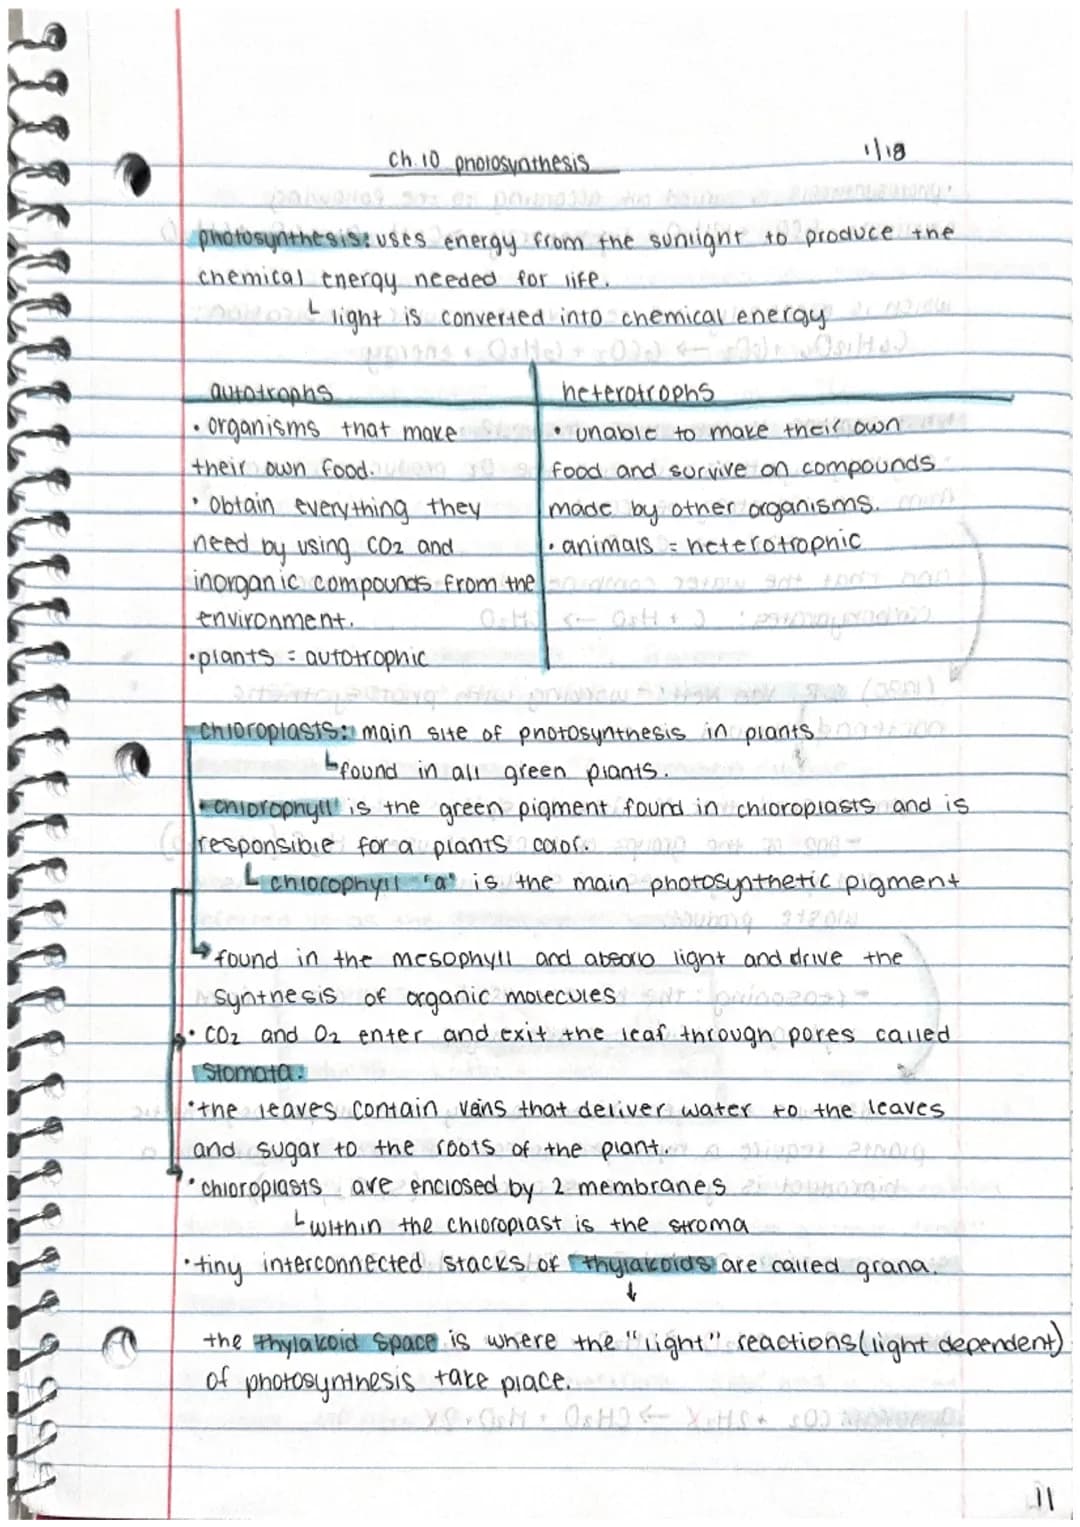 Ch. 10 photosynthesis 1/18
photosynthesis: uses energy from the sunlight to produce the
chemical energy needed for life.
↳ light is converted into chemical energy
autotrophs
• organisms that make
their own food.
• obtain everything they
need by using CO2 and
inorganic compounds from the
environment.
• plants = autotrophic
heterotrophs
• unable to make their own
food and survive on compounds
made by other organisms.
• animals = heterotrophic
chloroplasts: main site of photosynthesis in plants
↳ found in all green plants.
• chlorophyll is the green pigment found in chloroplasts and is
responsible for a plants color.
↳ chlorophyll "a" is the main photosynthetic pigment
→ found in the mesophyll and absorb light and drive the
synthesis of organic molecules
• CO2 and O2 enter and exit the leaf through pores called
stomata.
• the leaves contain veins that deliver water to the leaves
and sugar to the roots of the plant.
• chloroplasts are enclosed by 2 membranes
↳ within the chloroplast is the stroma
• tiny interconnected stacks of thylakoids are called grana.
↓
the thylakoid space is where the "light" reactions (light dependent)
of photosynthesis take place.
11